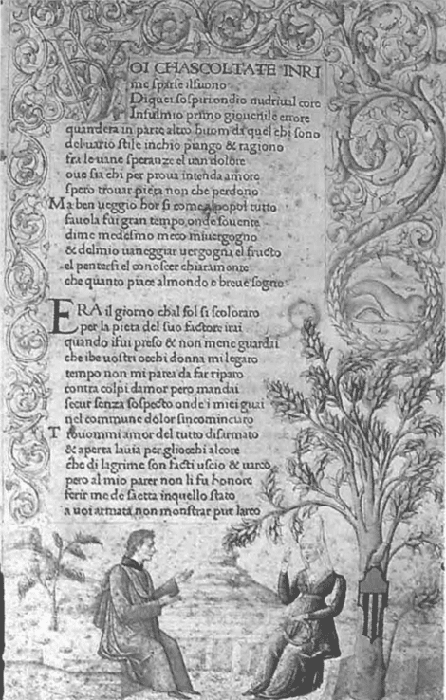 VOI CHASCOLTATE INRI
me sparse il suono
Di quei sospiri ondio nudriva l core
In sul mio primo giovenile errore
quandera in parte altro huom da quel chi sono
del vario stile in chio piango & ragiono
fra le vane speranze el van dolore
ove sia chi per prova intenda amore
spero trovar pieta non che perdono
Ma ben veggio hor si come al popol tutto
favola fui gran tempo onde sovente
di me medesmo meco mi vergogno
& del mio vaneggiar vergogna el fructo
el pentersi el conoscer chiaramente
che quanto piace al mondo e breve sogno
ERA il giorno chal sol si scoloraro
per la pieta del suo factore i rai
quando i fui preso & non mene guardai
che ibe vostri occhi donna mi legaro
tempo non mi parea da far riparo
contra colpi damor pero mandai
secur senza sospecto onde i miei guai
nel commune dolor sincominciaro
Trovommi amor del tutto disarmato
& aperta la via per gliocchi al core
che di lagrime son facti uscio & varco
pero al mio parer non li fu honore
ferir me de saetta in quello stato
a voi armata non monstrar pur larco